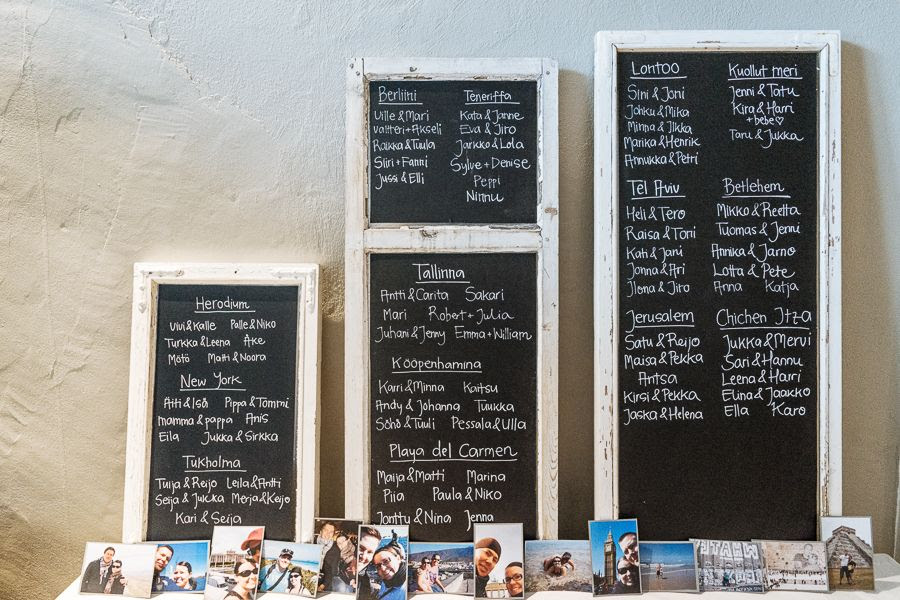 Herodium
Vivi & Kalle Palle & Niko
Turkka & Leena Ake
Mötö Matti & Noora
New York
Äiti & Isä Pippa & Tommi
mamma & pappa Anis
Eila Jukka & Sirkka
Tukholma
Tuija & Reijo Leila & Antti
Seija & Jukka Merja & Keijo
Kari & Seija
Berliini
Ville & Mari
Valtteri + Akseli
Raikka & Tuula
Siiri + Fanni
Jussi & Elli
Teneriffa
Kata & Janne
Eva & Jiro
Jarkko & Lola
Sylve + Denise
Peppi
Ninnu
Tallinna
Antti & Carita Sakari
Mari Robert + Julia
Juhani & Jenny Emma + William
Kööpenhamina
Karri & Minna Kaitsu
Andy & Johanna Tuukka
Söhö & Tuuli Pessala & Ulla
Playa del Carmen
Maija & Matti Marina
Piia Paula & Niko
Jonttu & Nina Jenna
Lontoo
Sini & Joni
Johku & Mika
Minna & Iikka
Marika & Henrik
Annukka & Petri
Kuollut meri
Jenni & Tatu
Kira & Harri
+ bebe ♡
Taru & Jukka
Tel Aviv
Heli & Tero
Raisa & Toni
Kati & Jani
Jonna & Ari
Ilona & Jiro
Betlehem
Mikko & Reetta
Tuomas & Jenni
Annika & Jarno
Lotta & Pete
Anna Katja
Jerusalem
Satu & Reijo
Maisa & Pekka
Antsa
Kirsi & Pekka
Jaska & Helena
Chichen Itza
Jukka & Mervi
Sari & Hannu
Leena & Harri
Elina & Jaakko
Ella Karo